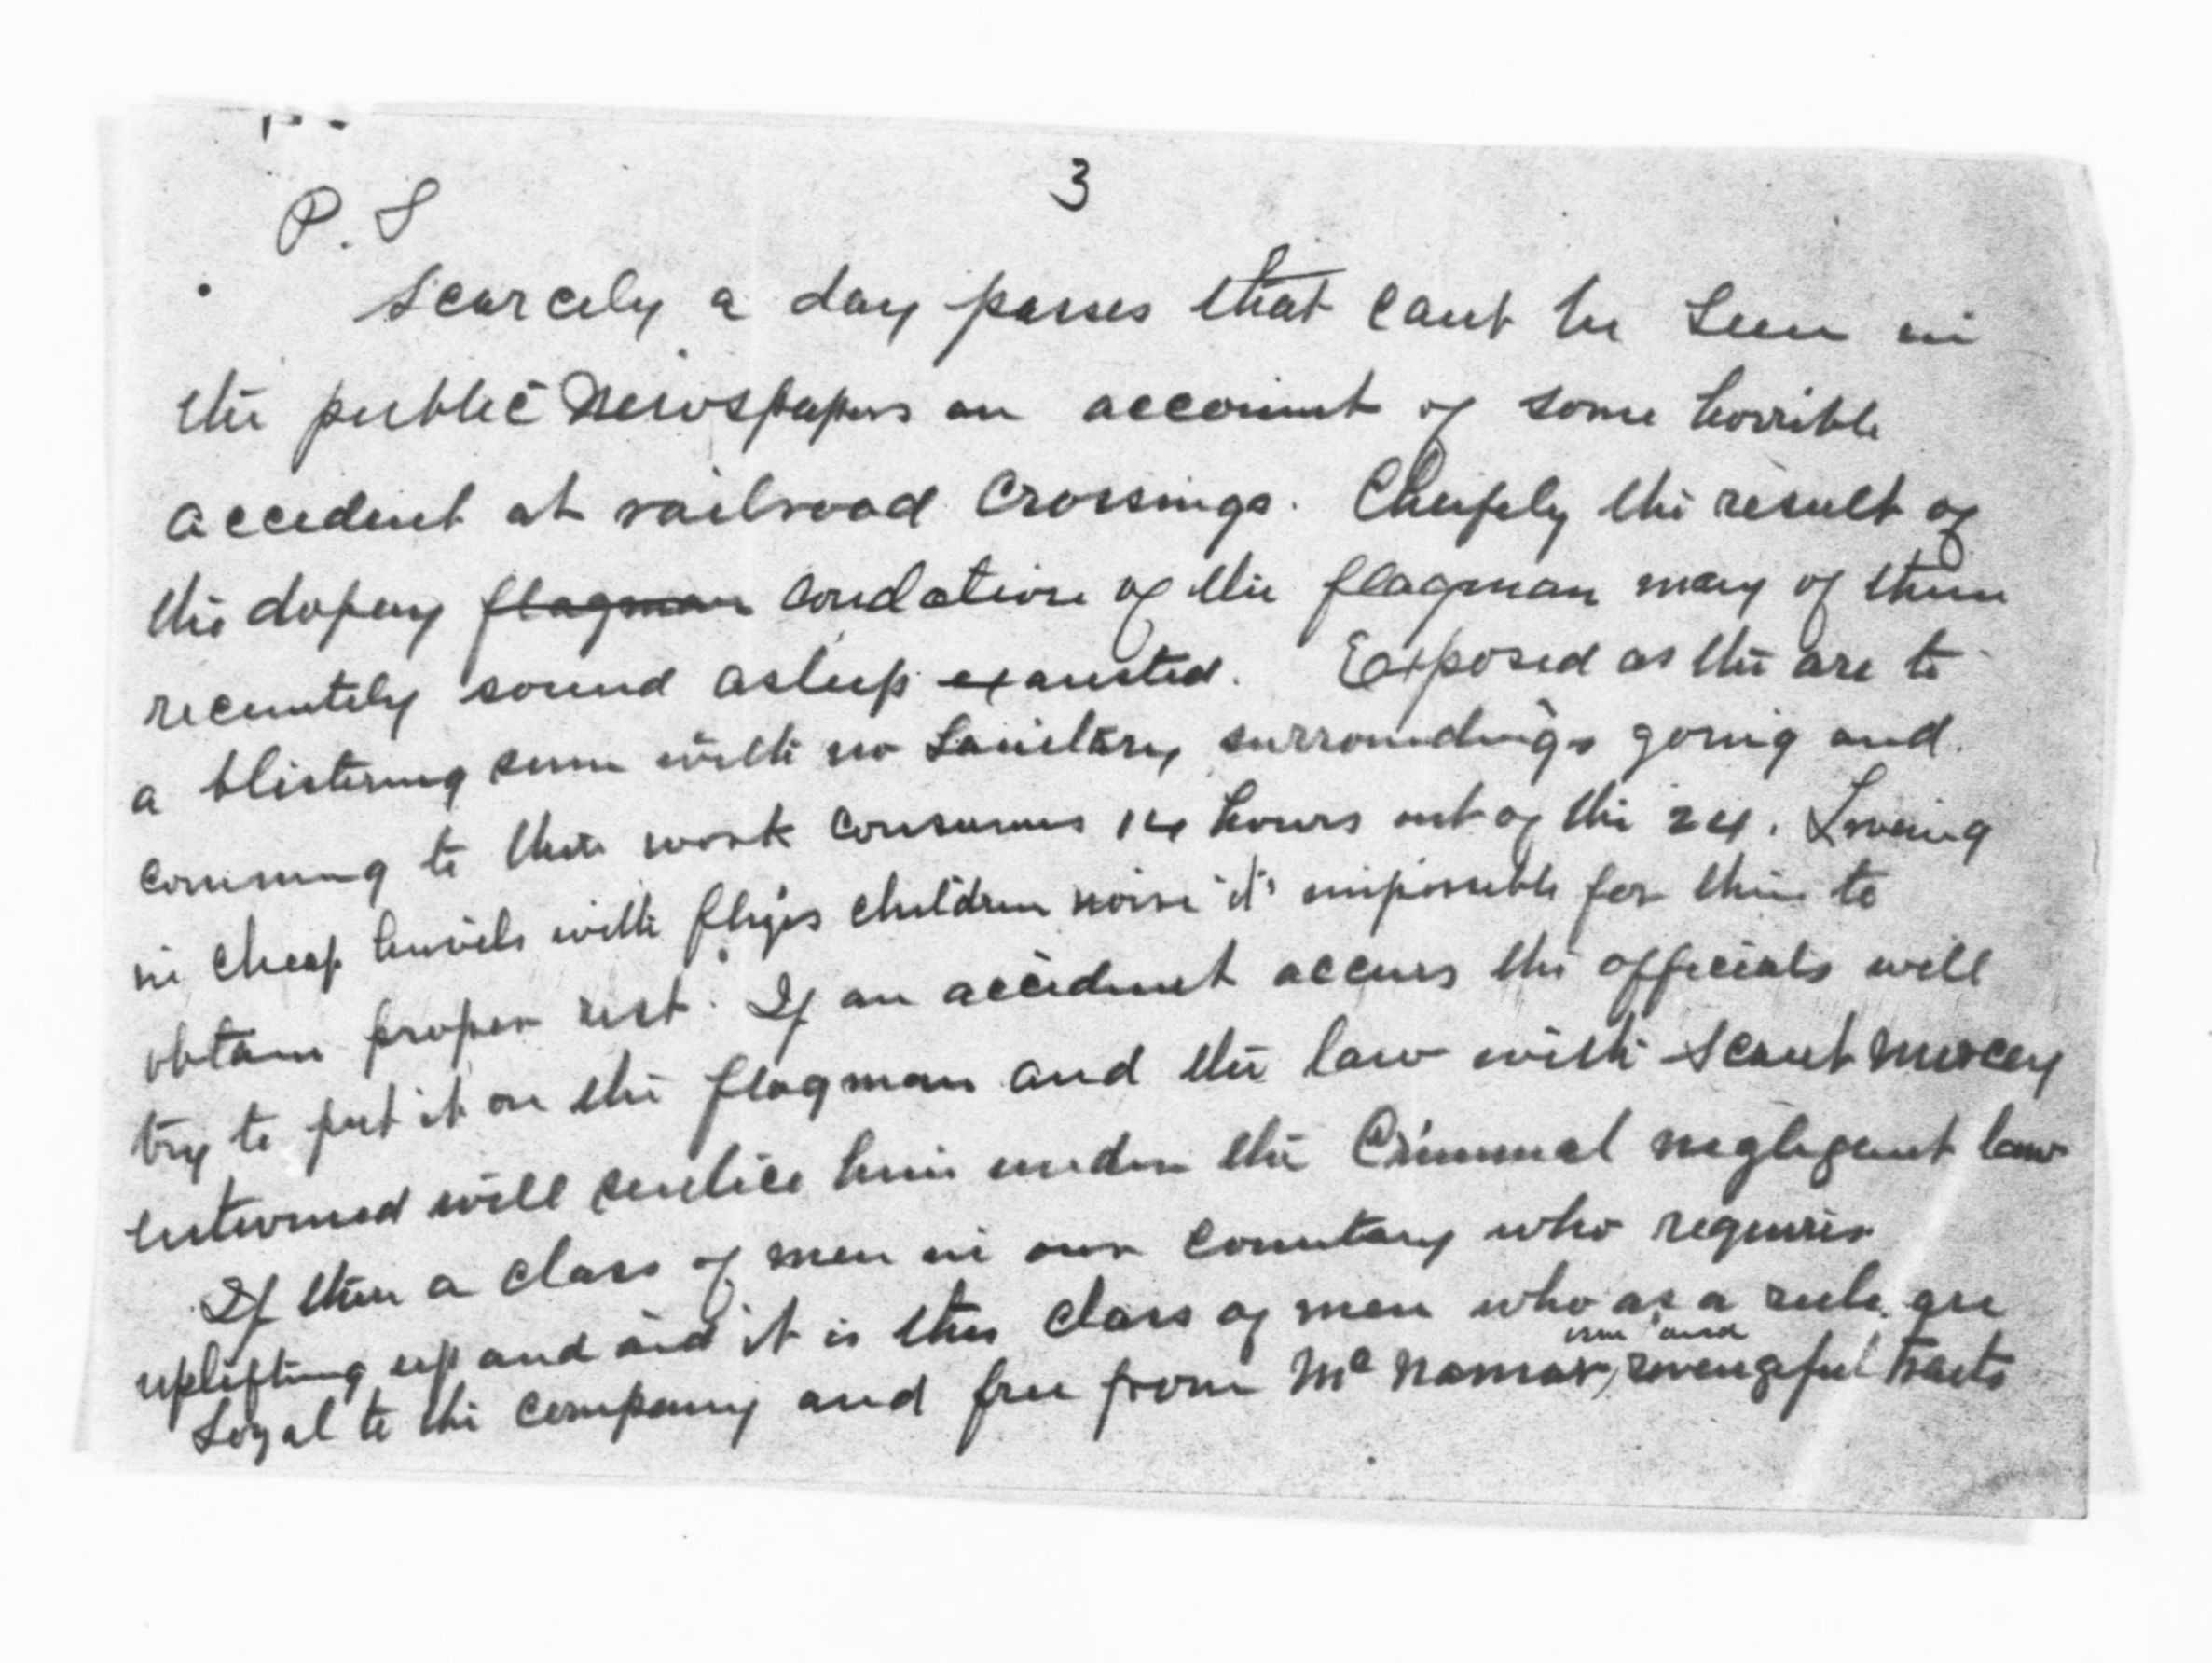 3
P. S
Scarcely a day passes that cant be seen in
the public Newspapers an account of some horrible
accident at railroad Crossings. Cheifely the result of
the dopeny flagman condation of the flagman many of them
recenntely sound asleep exausted. Exposed as the are to
a blistering sunn with no Sanitary surroundings going and
comming to their work consumes 14 hours out of the 24. Living
in cheap huvels with flys children noise it's impossible for them to
obtain proper rest. If an accident accurs the officials will
try to put it on the flagman and the law with scant mercy
will sentice him under the Criminal neglegent law
If then a class of men in our countary who requires
uplifting up and aid it is this class of men who as a rule are
Loyal to the company and free from Mc Namar, ism and revengeful traits